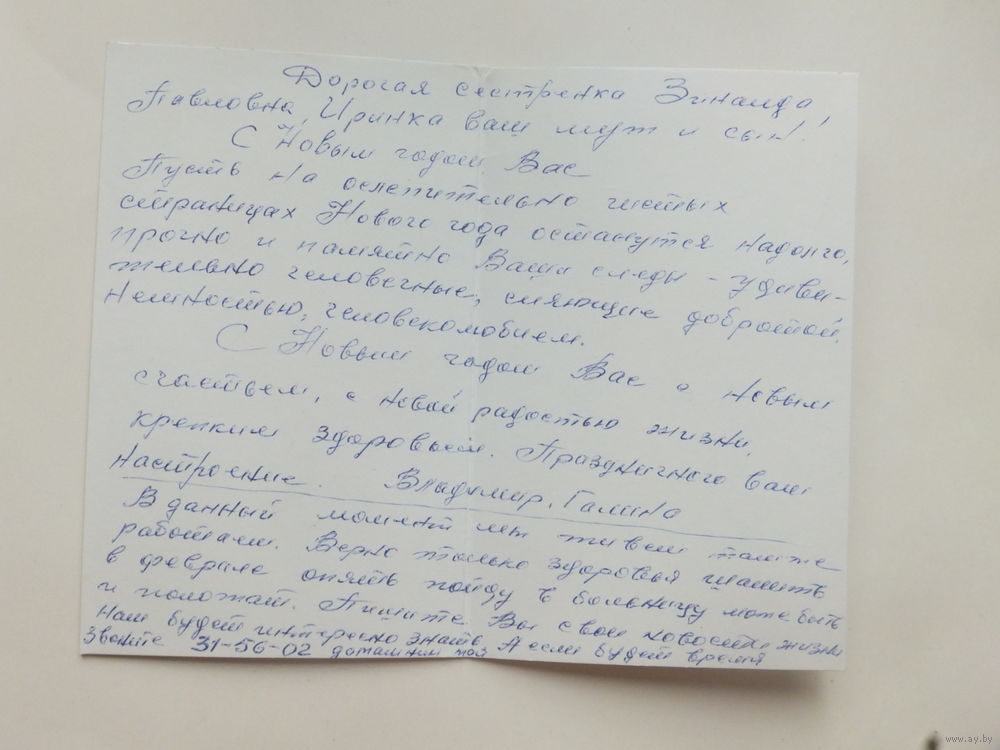 Дорогая сестренка Зинаида
Павловна, Иринка ваш муж и сын!
С Новым годом Вас
Пусть на ослепительно чистых
страницах Нового года останутся надолго,
прочно и памятно Ваши следы - удиви-
тельно человечные, сияющие добротой,
нежностью, человеколюбием.
С Новым годом Вас с новым
счастьем, с новой радостью жизни,
крепким здоровьем. Праздничного вам
настроение. Владимир, Галина
В данный момент мы живем также
работаем. Верно только здоровья
в феврале опять пойду в больницу может быть
и положат. Пишите Вы свои новости жизни
Нам будет интересно знать. А если будет время
Звоните 31-56-02
www.ay.by